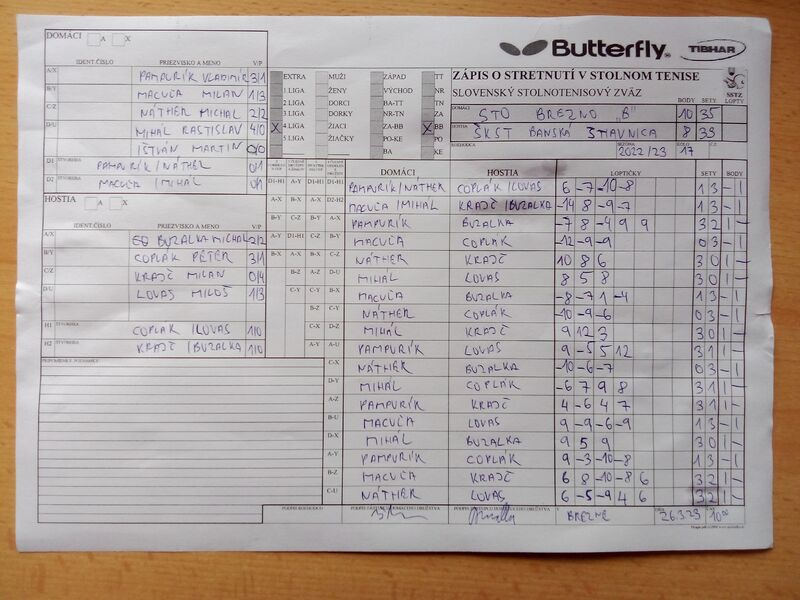 DOMÁCI A X
IDENT.ČÍSLO PRIEZVISKO A MENO V/P
A/X PAMPURÍK VLADIMÍR 3/1
B/Y MACUĽA MILAN 1/3
C/Z NÁTHER MICHAL 2/2
D/U MIHÁL RASTISLAV 4/0
IŠTVÁN MARTIN 0/0
D1 ŠTVORHRA PAMPURÍK/NÁTHER 0/1
D2 MACUĽA/MIHÁL 0/1
HOSTIA A X
IDENT.ČÍSLO PRIEZVISKO A MENO V/P
A/X BUZALKA MICHAL 2/2
B/Y COPLÁK PETER 3/1
C/Z KRAJČ MILAN 0/4
D/U LOVAS MILOŠ 1/3
H1 ŠTVORHRA COPLÁK/LOVAS 1/0
H2 ŠTVORHRA KRAJČ/BUZALKA 1/0
PRIPOMIENKY, PODPISY
EXTRA MUŽI ZÁPAD TT
1 LIGA ŽENY VÝCHOD NR
2 LIGA DORCI BA-TT TN
3 LIGA DORKY NR-TN ZA
X 4 LIGA ŽIACI ZA-BB X BB
5 LIGA ŽIAČKY PO-KE PO
BA KE
Butterfly TIBHAR
ZÁPIS O STRETNUTÍ V STOLNOM TENISE
SLOVENSKÝ STOLNOTENISOVÝ ZVÄZ
SSTZ
BODY SETY LOPTY
DOMÁCI STO BREZNO "B" 10 35
HOSTIA ŠKST BANSKÁ ŠTIAVNICA 8 35
ROZHODCA SEZÓNA 2022/23 KOLO 17 Č.Z.
DOMÁCI HOSTIA LOPTIČKY SETY BODY
D1-H1 A-Y D1-H1 D1-H1 PAMPURÍK/NÁTHER COPLÁK/LOVAS 6 -7 -10 -8 1 3 - 1
A-X B-X A-X D2-H2 MACUĽA/MIHÁL KRAJČ/BUZALKA -14 8 -9 -7 1 3 - 1
B-Y C-Z B-Y A-X PAMPURÍK BUZALKA -7 8 -4 9 9 3 2 1 -
A-Y D1-H1 C-Z B-Y MACUĽA COPLÁK -12 -9 -9 0 3 - 1
B-X A-X B-X C-Z NÁTHER KRAJČ 10 8 6 3 0 1 -
B-Z A-Z D-U MIHÁL LOVAS 8 5 8 3 0 1 -
C-Y C-Y B-X MACUĽA BUZALKA -8 -7 1 -4 1 3 - 1
B-Z C-Y NÁTHER COPLÁK -10 -9 -6 0 3 - 1
C-X D-Z MIHÁL KRAJČ 9 12 3 3 0 1 -
A-Y A-U PAMPURÍK LOVAS 9 -5 5 12 3 1 1 -
C-X NÁTHER BUZALKA -10 -6 -7 0 3 - 1
D-Y MIHÁL COPLÁK -6 7 9 8 3 1 1 -
A-Z PAMPURÍK KRAJČ 4 -6 4 7 3 1 1 -
B-U MACUĽA LOVAS 9 -9 -6 -9 1 3 - 1
D-X MIHÁL BUZALKA 9 5 9 3 0 1 -
A-Y PAMPURÍK COPLÁK 9 -3 -10 -8 1 3 - 1
B-Z MACUĽA KRAJČ 6 8 -10 -8 6 3 2 1 -
C-U NÁTHER LOVAS 6 -5 -9 4 6 3 2 1 -
PODPIS ROZHODCU PODPIS ZÁSTUPCU DOMÁCEHO DRUŽSTVA PODPIS ZÁSTUPCU HOSŤUJÚCEHO DRUŽSTVA V BREZNE DŇA 26.3.23 ČAS 10:00